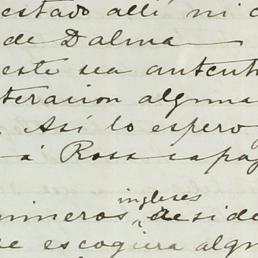 estado allí ni c
de Dalma
este sea autent
teracion alguna
. Así lo espero
á Ross capa
ingleses
mineros reside
e escogiera alg